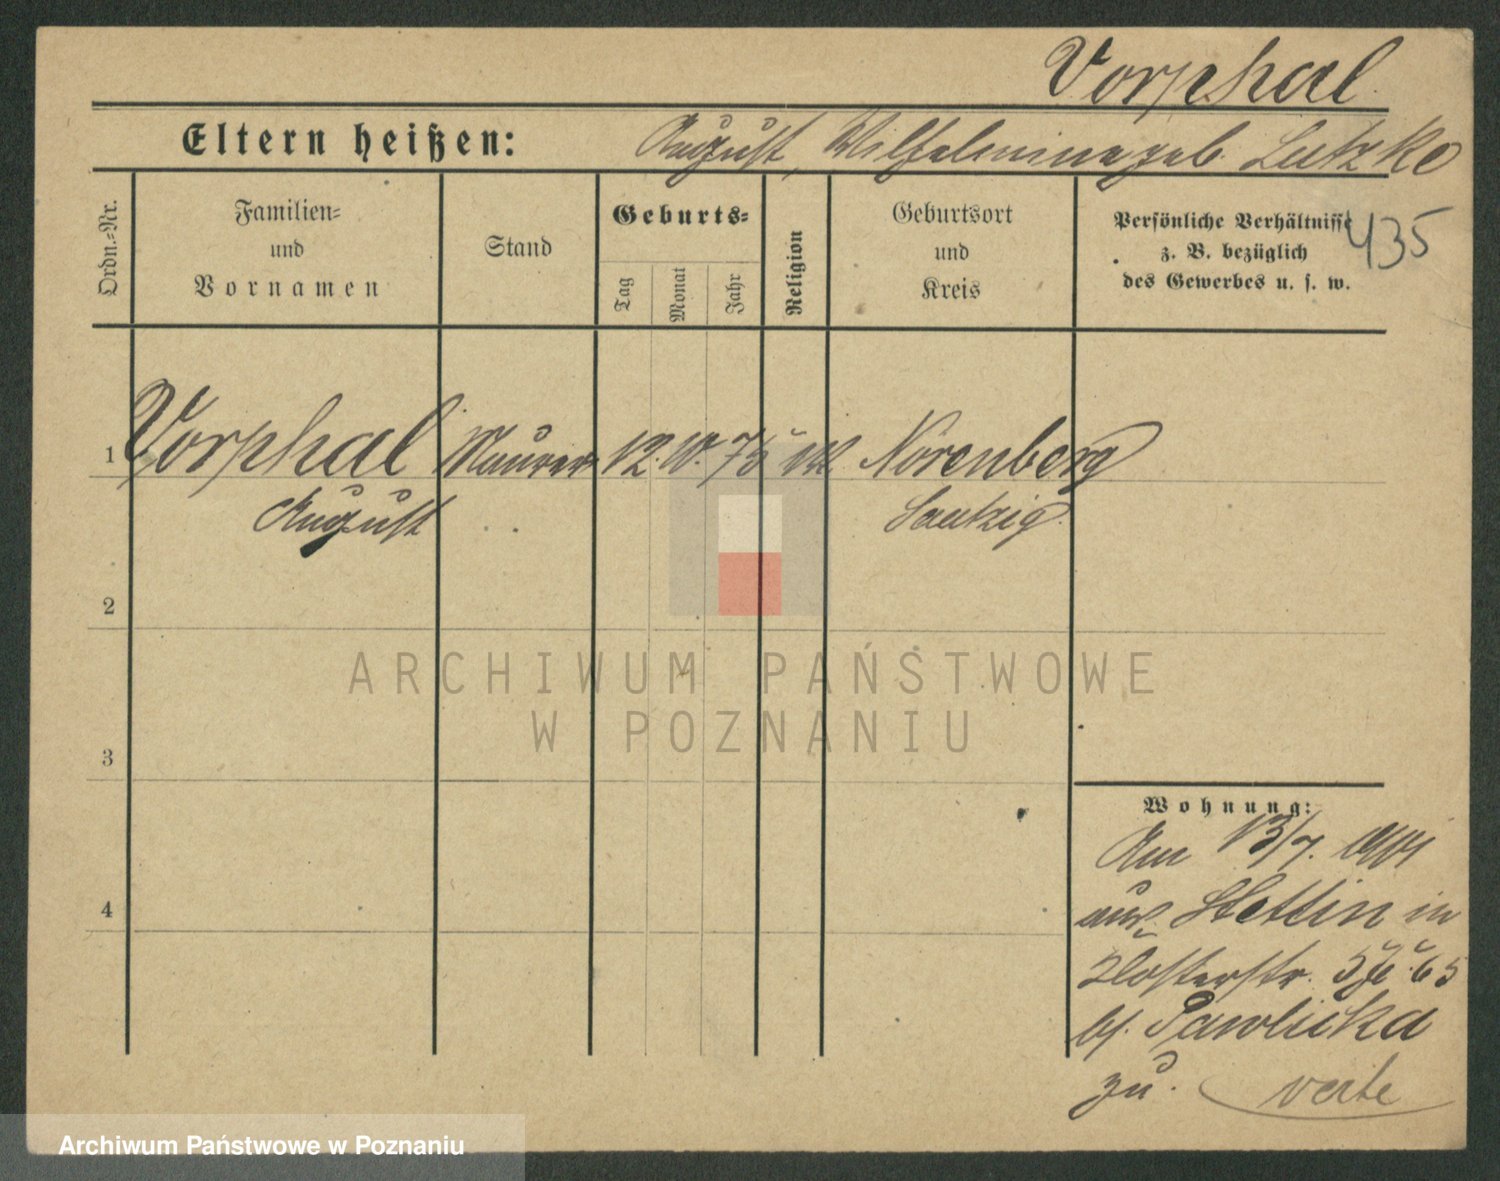 Vorphal
Eltern heißen: August, Wilhelmine geb. Lutzke
Ordn.-Nr.
Familien-
und
Vornamen
Stand
Geburts-
Tag
Monat
Jahr
Religion
Geburtsort
und
Kreis
Persönliche Verhältnisse
z. B. bezüglich
des Gewerbes u. s. w.
435
1 Vorphal Maurer 12. 10. 75 Nörenberg
August Saatzig
2
3
4
Wohnung:
Am 13/7. 1901
aus Stettin in
Klosterstr. 5
bf. Pawlicka
zu. verte
ARCHIWUM PAŃSTWOWE
W POZNANIU
Archiwum Państwowe w Poznaniu